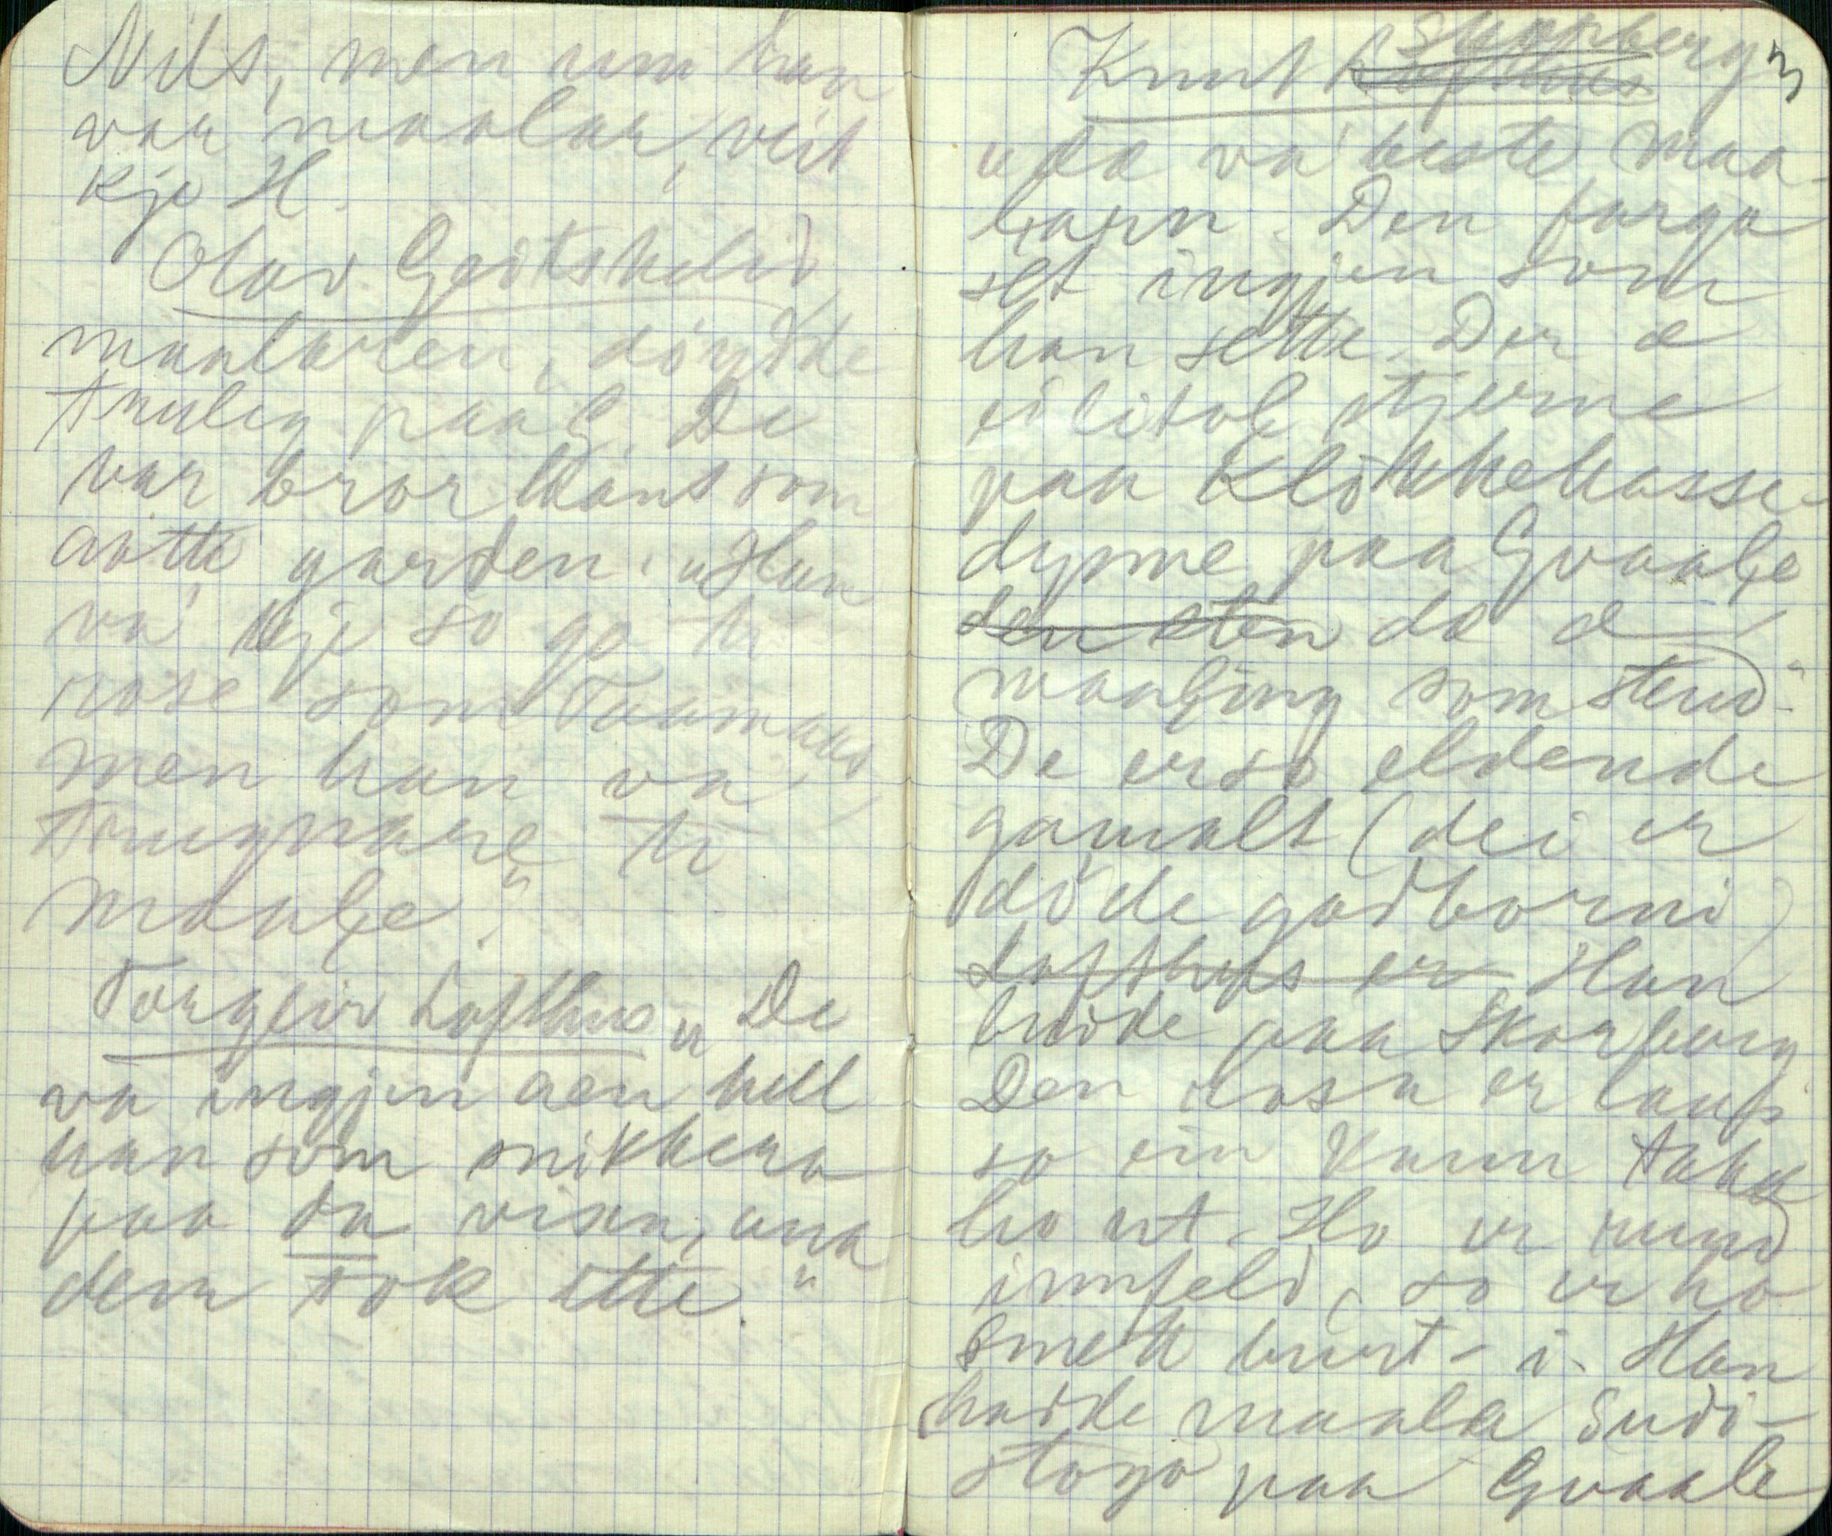 Nils, men um han
var maalar, veit
kje H.
Olav Geitskelid,
maalaren, döydde
truleg paa G. De
var bror hans som
aatte garden. "Han
va kje so go ti
rose som Taamaas,
men han va
trugnare ti
maale."
Torgeir Lofthus "De
va ingjen aen hell
han som snikkera
paa da visa, una
dem tok ette."
Knut Lofthus Skorberg 3
"dæ va beste maa-
larn. Den farga
slt ingjen som
han sette. Der æ
ei litol stjerne
paa Klokkekasse-
dynne paa Gvaale
den sten dæ æ
maaling som stend."
De er so eldende
gamalt (dei er
döde godborni)
Lofthus er Han
budde paa Skorberg
Den rosa er laus
so ein kann taka
ho ut. Ho er rund
innfeld, so er ho
smett burt-i. Han
hadde maala Sudi-
stogo paa Gvaale